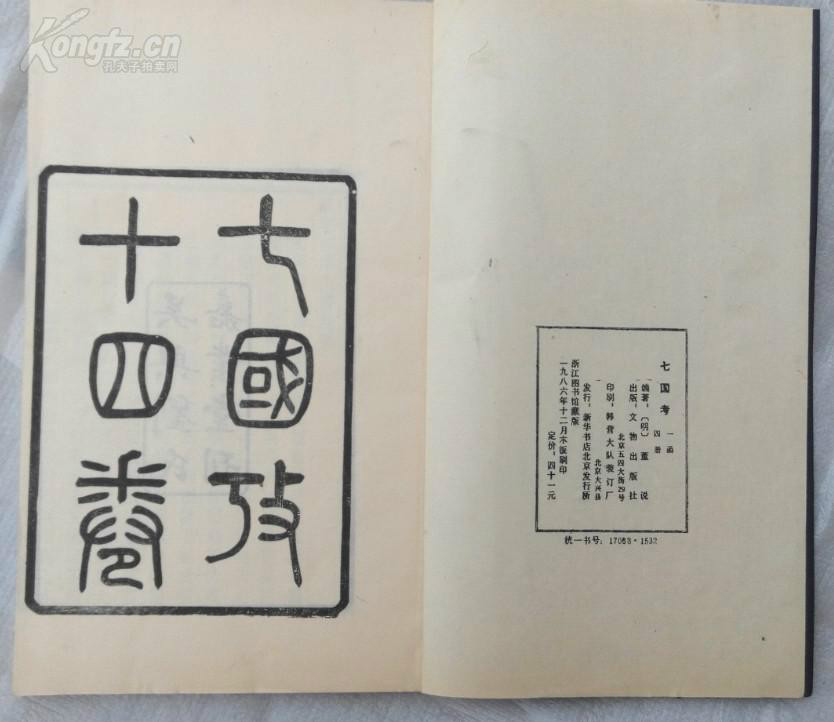 Kongfz.cn
孔夫子拍卖网
七國攷
十四卷
七国考 一函四册
编著：〔明〕董说
出版：文物出版社
北京五四大街29号
印刷：韩营大队装订厂
北京大兴县
发行：新华书店北京发行所
浙江图书馆藏版
一九八六年十二月木板刷印
定价：四十一元
统一书号：17068·1532